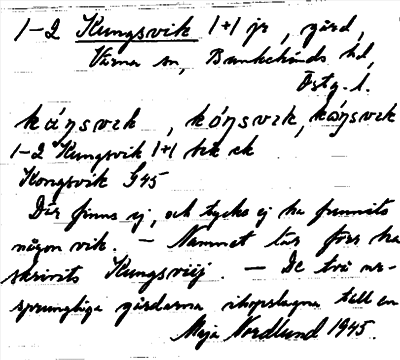 1-2 Kungsvik 1+1 jr, gård,
Värna sn, Bankekinds hd,
Östg. l.
kåŋsvɩk, kóŋsvɩk, kåŋsvɩk
1-2 Kungsvik 1+1 Jrk ek
Kongsvik G45
Där finns ej, och tycks ej ha funnits
någon vik. – Namnet lär förr ha
skrivits Kungsviij. – De två ur-
sprungliga gårdarna ihopslagna till en
Maja Nordlund 1945.